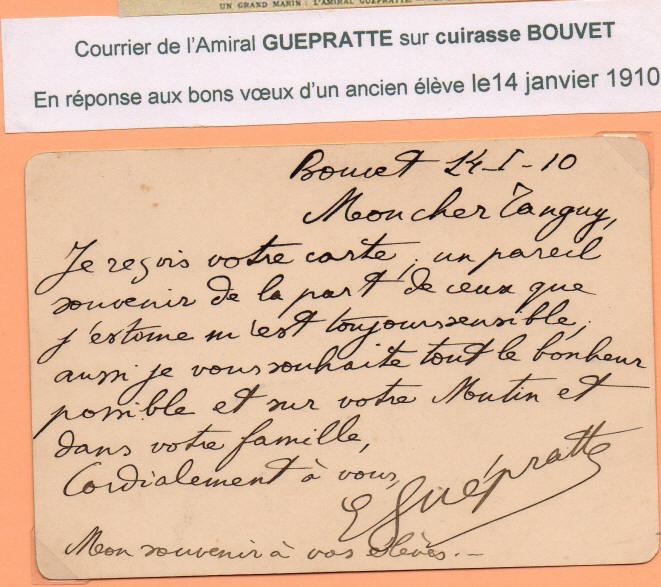 UN GRAND MARIN : L'AMIRAL GUEPRATTE
Courrier de l'Amiral GUEPRATTE sur cuirasse BOUVET
En réponse aux bons vœux d'un ancien élève le14 janvier 1910
Bouvet 14-I-10
Mon cher Tanguy,
Je reçois votre carte, un pareil
souvenir de la part de ceux que
j'estime m'est toujours sensible,
aussi je vous souhaite tout le bonheur
possible et sur votre Mutin et
dans votre famille,
Cordialement à vous
E Guépratte
Mon souvenir à vos élèves.-